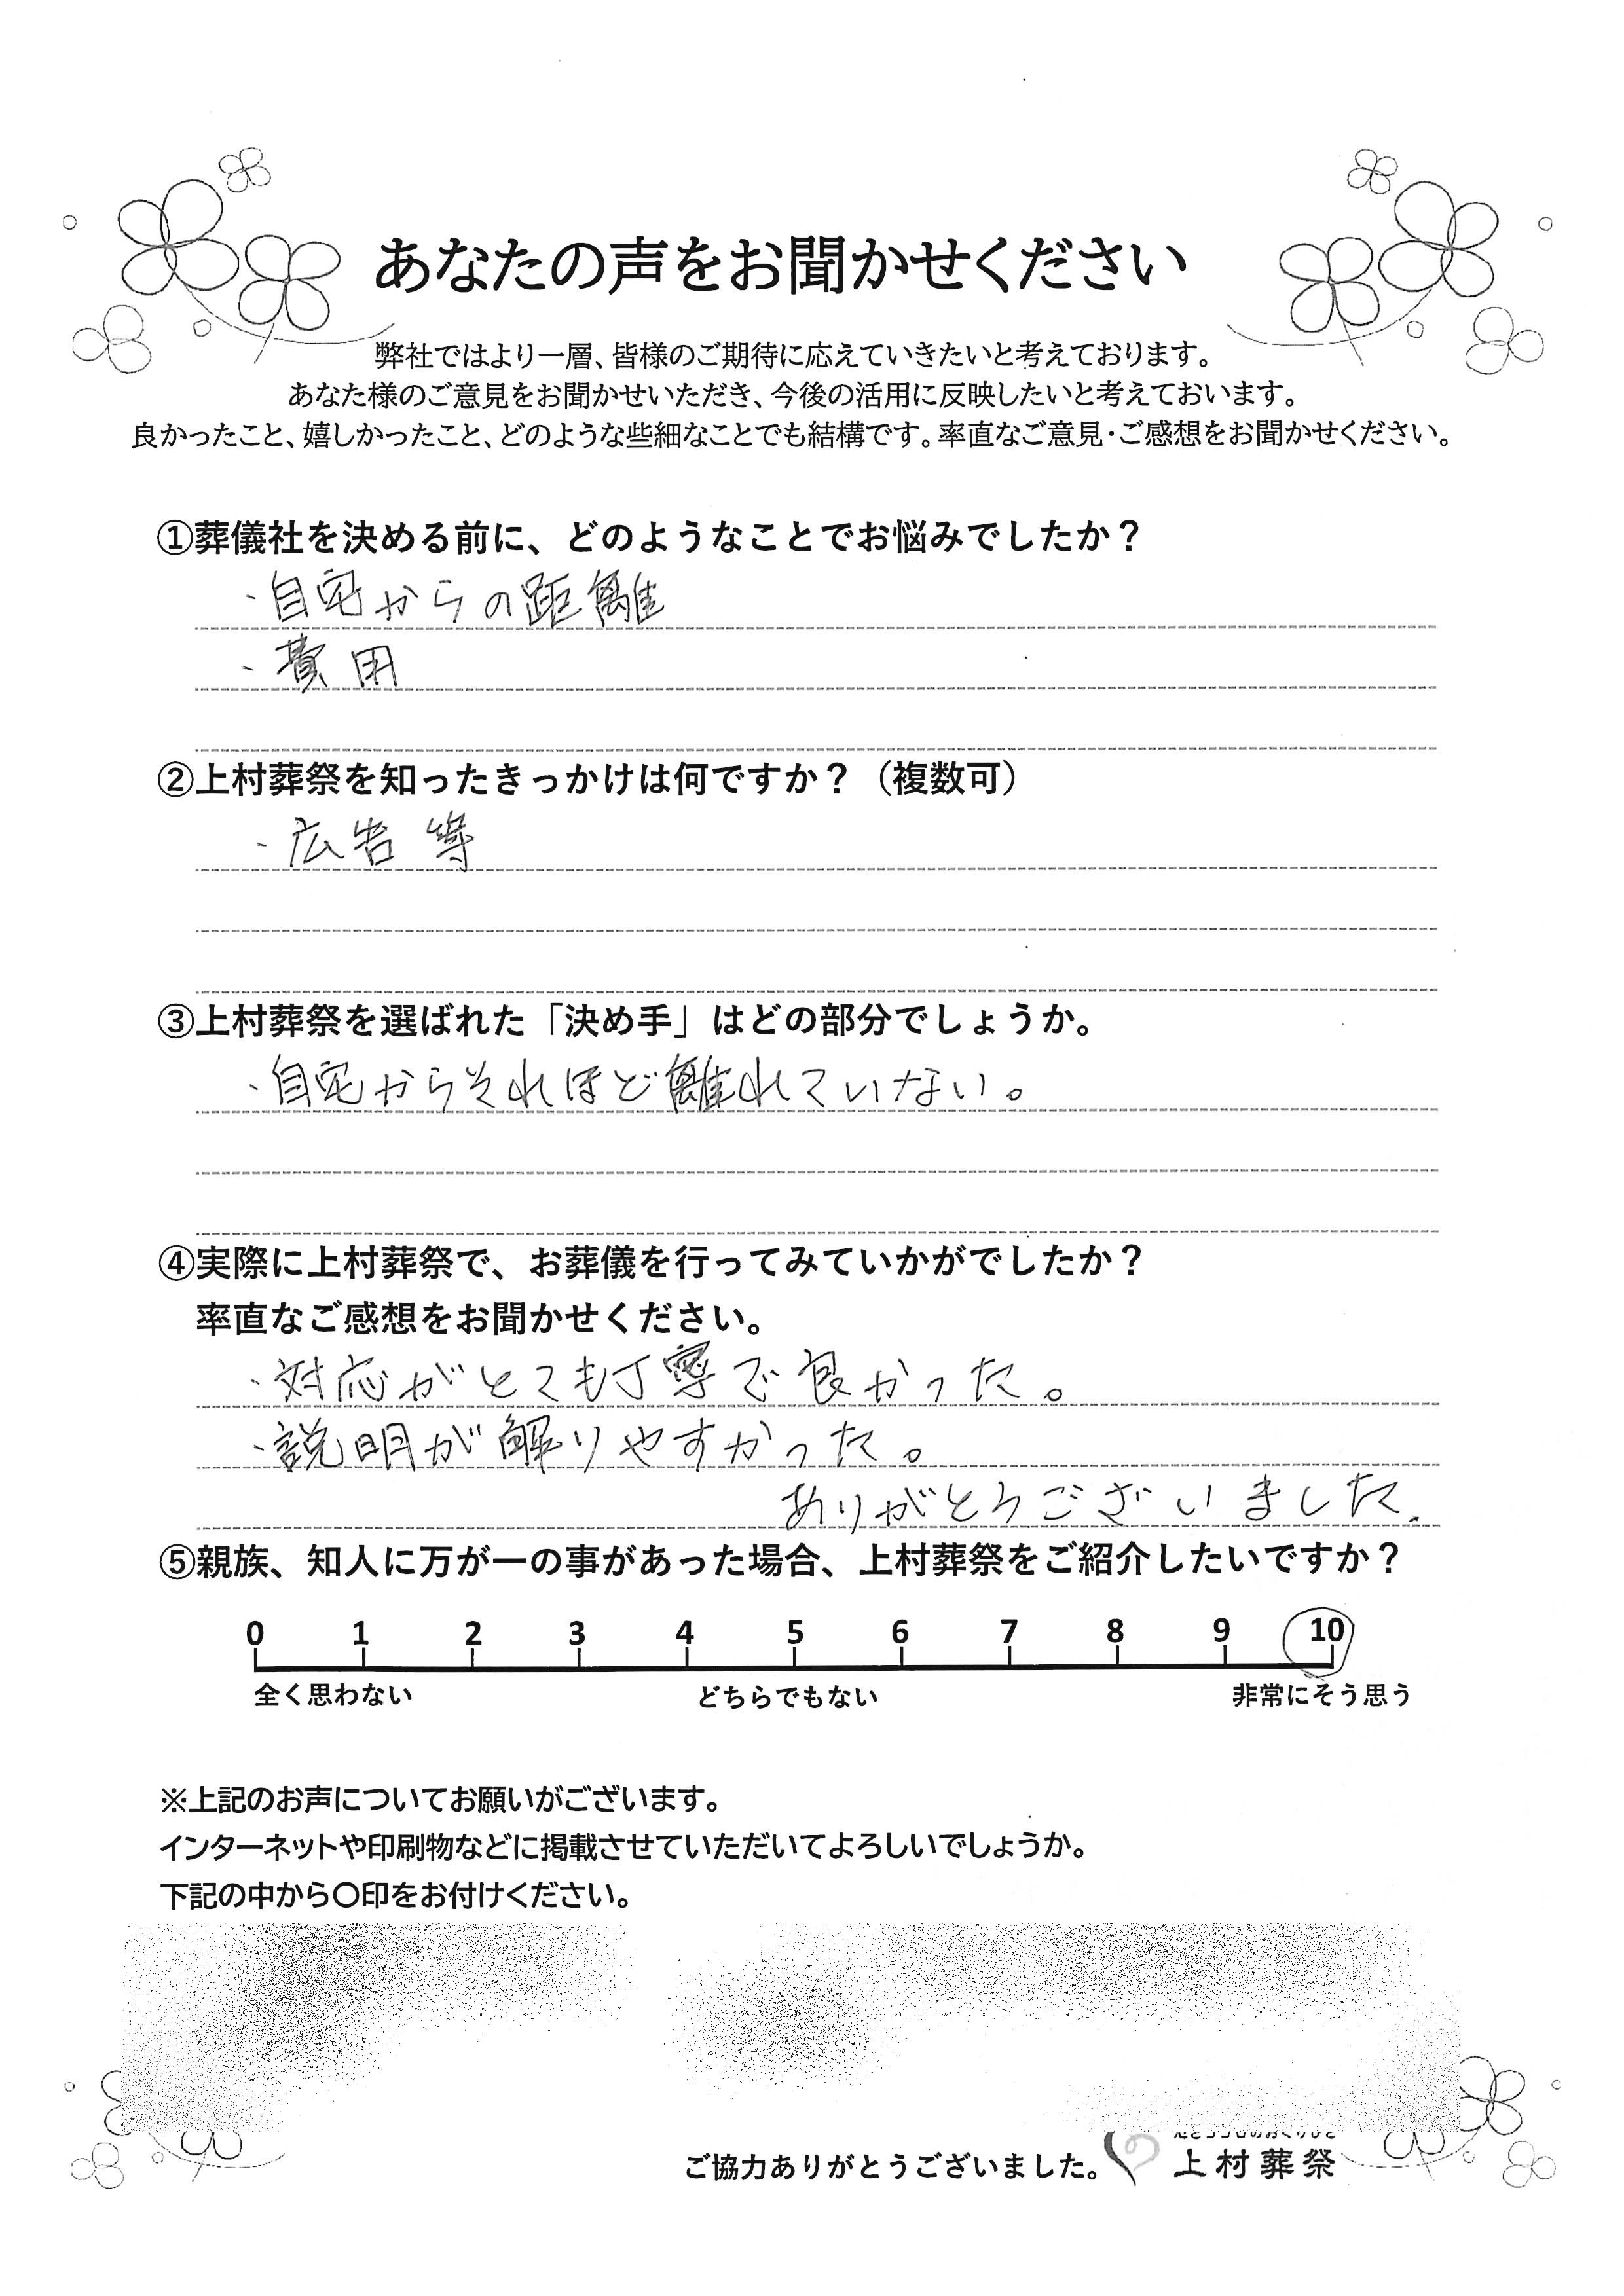 あなたの声をお聞かせください
弊社ではより一層、皆様のご期待に応えていきたいと考えております。
あなた様のご意見をお聞かせいただき、今後の活用に反映したいと考えておいます。
良かったこと、嬉しかったこと、どのような些細なことでも結構です。率直なご意見・ご感想をお聞かせください。
①葬儀社を決める前に、どのようなことでお悩みでしたか？
・自宅からの距離
・費用
②上村葬祭を知ったきっかけは何ですか？（複数可）
・広告等
③上村葬祭を選ばれた「決め手」はどの部分でしょうか。
・自宅からそれほど離れていない。
④実際に上村葬祭で、お葬儀を行ってみていかがでしたか？
率直なご感想をお聞かせください。
・対応がとても丁寧で良かった。
・説明が解りやすかった。
ありがとうございました.
⑤親族、知人に万が一の事があった場合、上村葬祭をご紹介したいですか？
0 1 2 3 4 5 6 7 8 9 10
全く思わない どちらでもない 非常にそう思う
※上記のお声についてお願いがございます。
インターネットや印刷物などに掲載させていただいてよろしいでしょうか。
下記の中から〇印をお付けください。
ご協力ありがとうございました。 上村葬祭